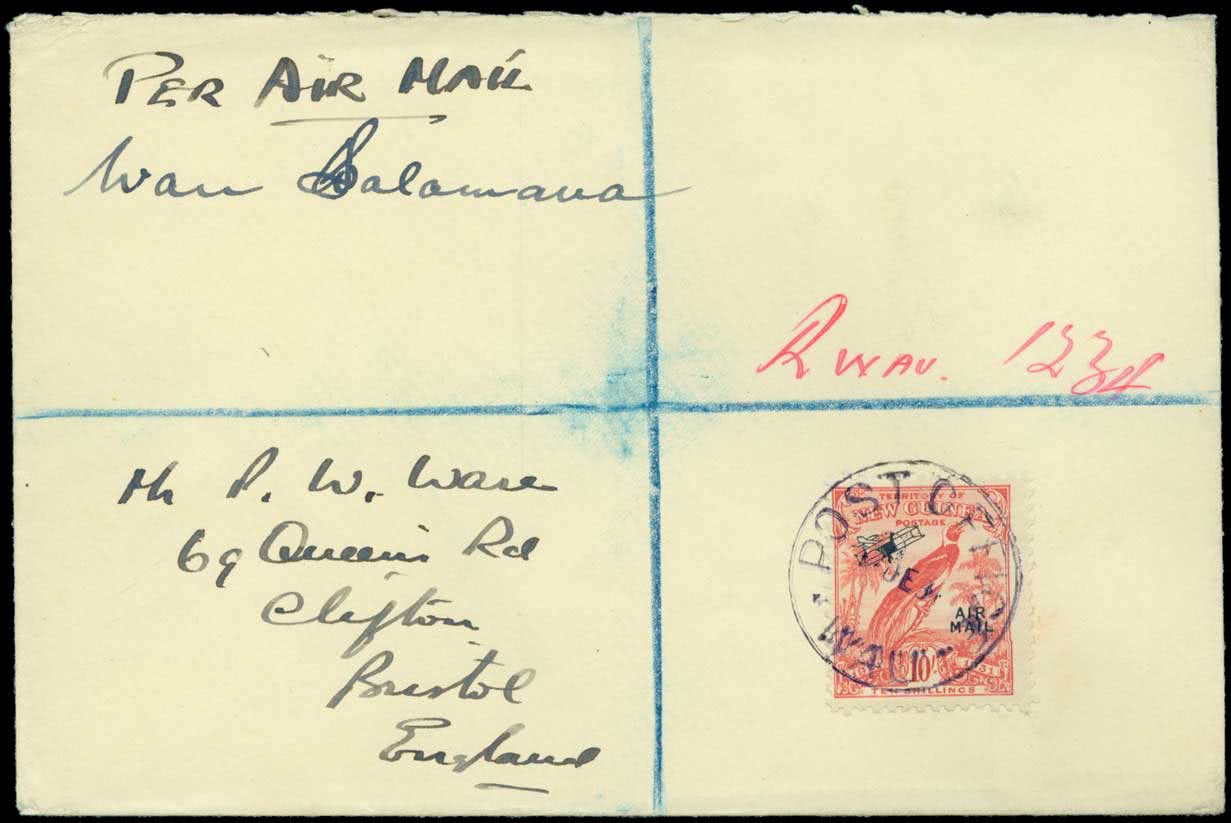 PER AIR MAIL
Wau Salamaua
R WAU. 1223
Mr P. W. Ware
69 Queens Rd
Clifton
Bristol
England
POST OFFICE
WAU
TERRITORY OF
NEW GUINEA
POSTAGE
DE
AIR
MAIL
10/-
1931
TEN SHILLINGS